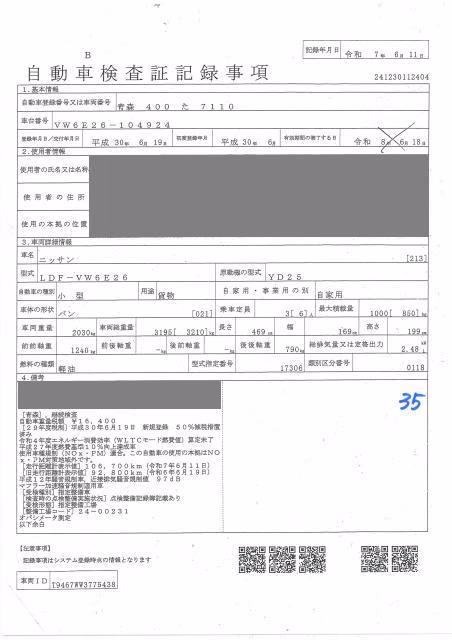 記録年月日 令和 7年 6月 11日
B
自動車検査証記録事項
241230112404
1.基本情報
自動車登録番号又は車両番号 青森 400 た 7110
車台番号 VW6E26-104924
登録年月日/交付年月日 平成 30年 6月 19日 初度登録年月 平成 30年 6月 有効期間の満了する日 令和 8年 6月 18日
2.使用者情報
使用者の氏名又は名称
使用者の住所
使用の本拠の位置
3.車両詳細情報
車名 ニッサン [213]
型式 LDF-VW6E26 原動機の型式 YD25
自動車の種別 小型 用途 貨物 自家用・事業用の別 自家用
車体の形状 バン [021] 乗車定員 3[ 6]人 最大積載量 1000[ 850]kg
車両重量 2030kg 車両総重量 3195[ 3210]kg 長さ 469cm 幅 169cm 高さ 199cm
前前軸重 1240kg 前後軸重 -kg 後前軸重 -kg 後後軸重 790kg 総排気量又は定格出力 2.48 kW L
燃料の種類 軽油 型式指定番号 17306 類別区分番号 0118
4.備考
35
[青森],継続検査
自動車重量税額 ¥16,400
[29年度税制]平成30年6月19日 新規登録 50%減税措置
済み
令和4年度エネルギー消費効率(WLTCモード燃費値)算定未了
平成27年度燃費基準10%向上達成車
使用車種規制(NOx・PM)適合,この自動車の使用の本拠はNO
x・PM対策地域外です。
[走行距離計表示値]106,700km(令和7年6月11日)
[旧走行距離計表示値]92,800km(令和6年6月19日)
平成12年騒音規制車,近接排気騒音規制値 97dB
マフラー加速騒音規制適用車
[受検種別]指定整備車
[検査時の点検整備実施状況]点検整備記録簿記載あり
[受検形態]指定整備工場
[整備工場コード]24-00231
オパシメータ測定
以下余白
【注意事項】
記録事項はシステム登録時点の情報となります
車両ID T9467WW3775438